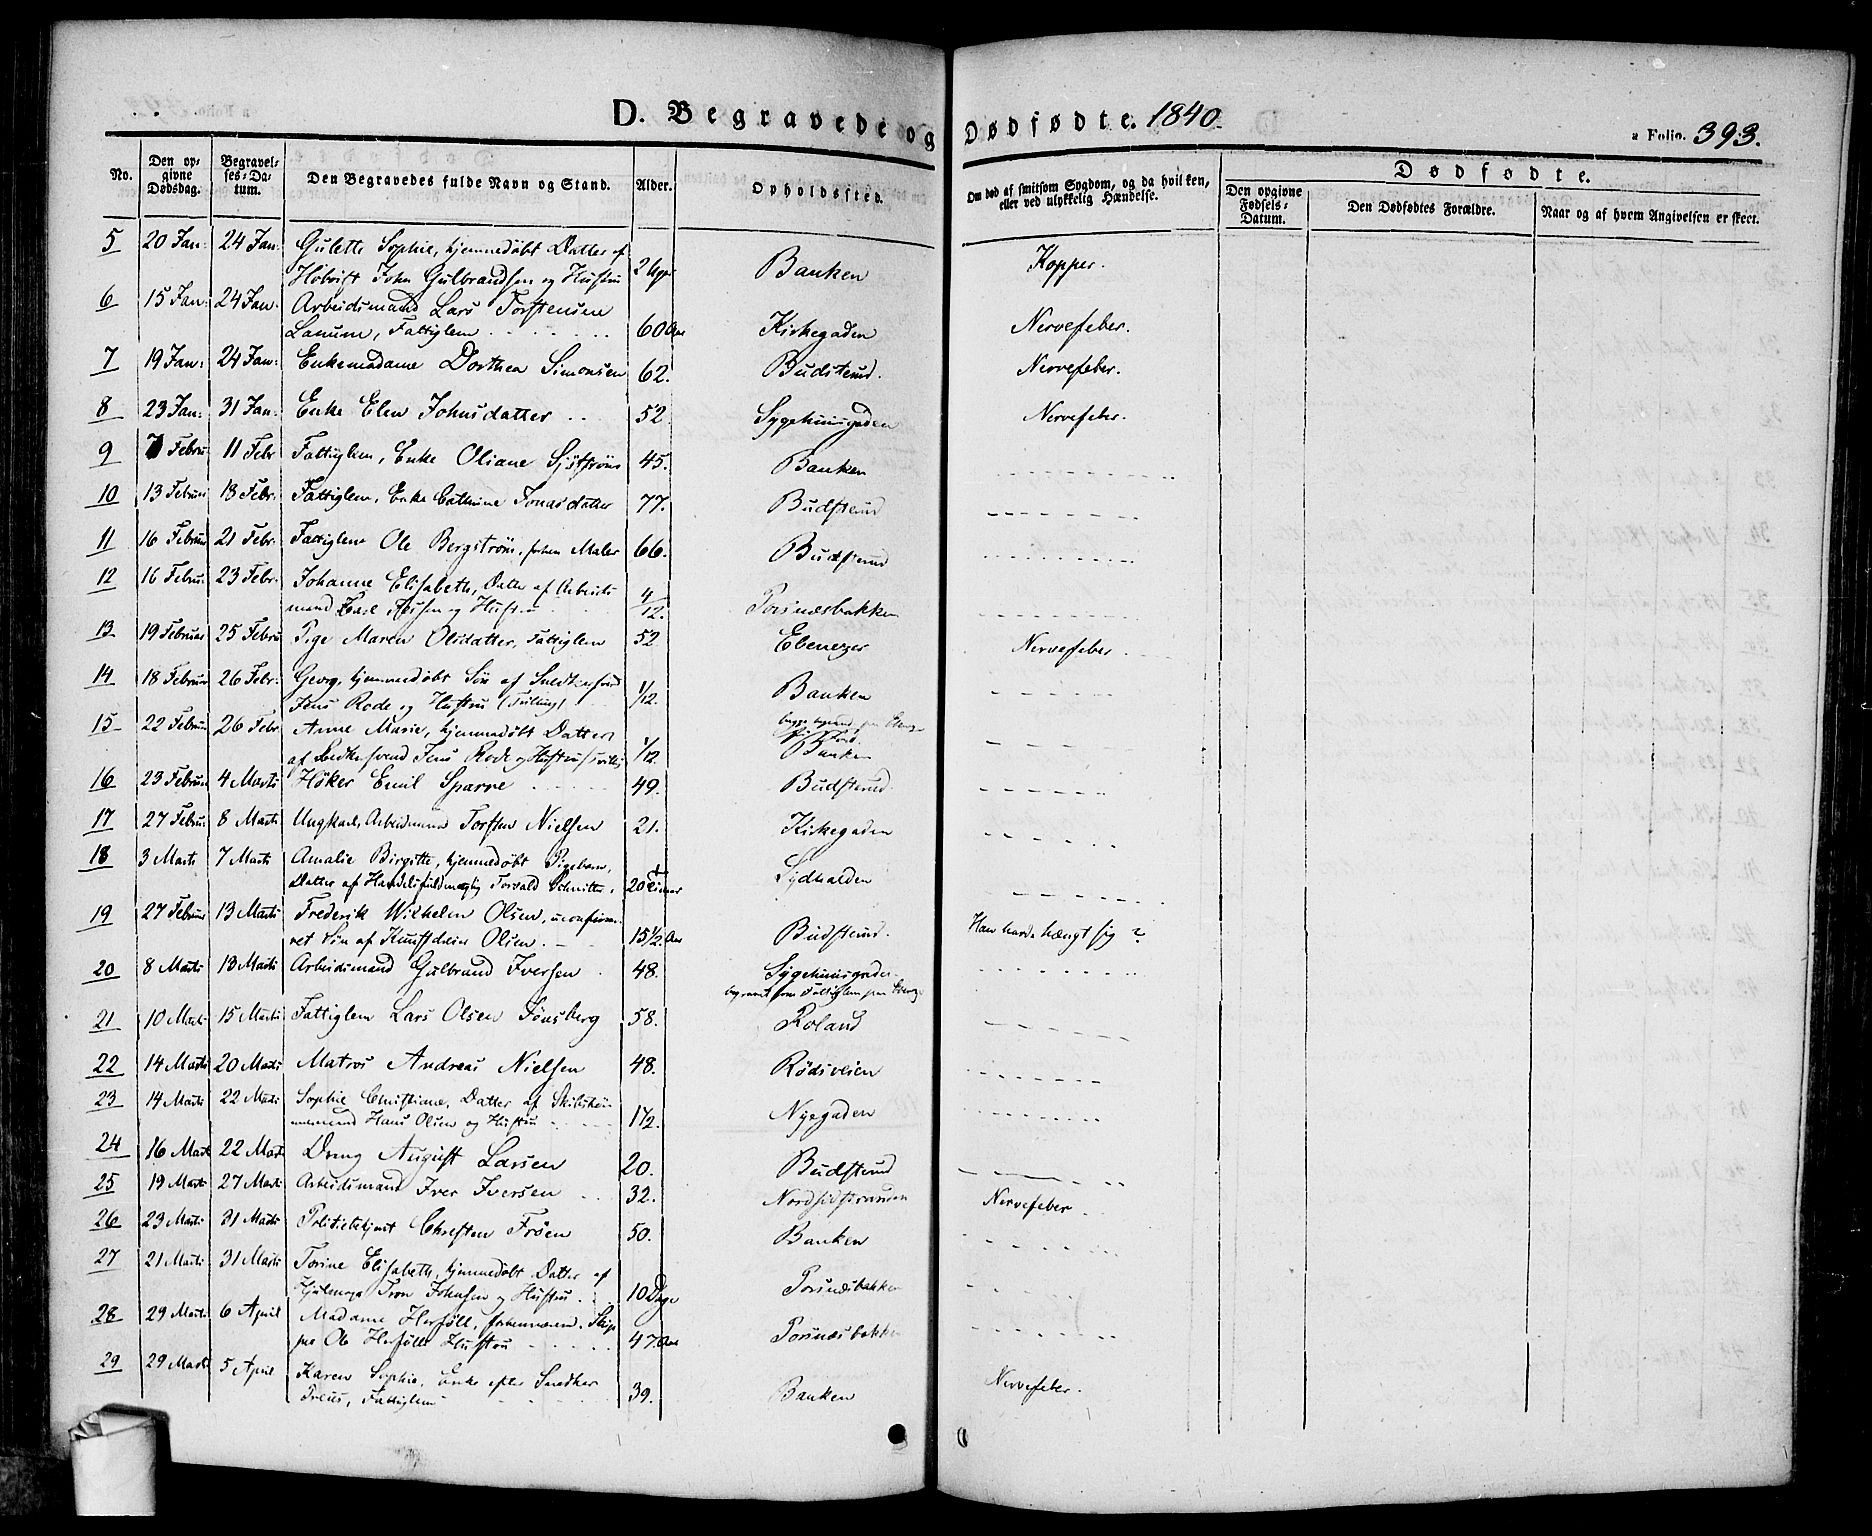 D. Begravede og Dødfødte. 1840.
a Folio. 393.
No.
Den op-
givne
Dødsdag.
Begravel-
ses-Da-
tum.
Den Begravedes fulde Navn og Stand.
Alder.
Opholdssted.
Om død af smitsom Sygdom, og da hvilken,
eller ved ulykkelig Hændelse.
Dødfødte.
Den opgivne
Fødsels-
Datum.
Den Dødfødtes Forældre.
Naar og af hvem Angivelsen er skeet.
5 20 Jan: 24 Jan: Gulette Sophie, hjemmedøbt Datter af
John Gulbrandsen og Hustru 2 Banken Kopper.
6 15 Jan: 24 Jan: Arbeidsmand Lars Torstensen
Lanum, Fattiglem 60 Aar Kirkegaden Nervefeber.
7 19 Jan: 24 Jan: Enkemadame Dorthea Simonsen 62. Budsteud. Nervefeber.
8 23 Jan: 31 Jan: Enke Elen Johnsdatter 52 Sygehuusgaden Nervefeber.
9 7 Februar 11 Febr Fattiglem, Enke Oliane Sjøstrøm 45. Banken
10 13 Februar 18 Febr. Fattiglem, Enke Cathrine Jonasdatter 77. Budsteud
11 16 Februar 21 Febr. Fattiglem Ole Bergstrøm, forhen Maler 66. Budsteud
12 16 Februar 23 Febr. Johanne Elisabeth, Datter af Arbeids
mand og Hustru 4/12. Torsnæsbakken
13 19 Februar 25 Febru Pige Maren Olsdatter, Fattiglem 52 Ebenezer Nervefeber.
14 18 Februar 26 Febr. Georg, hjemmedøbt Søn af Snedkersvend
Jens Rode og Hustru (Tvilling) 1/12. Banken
15 22 Februar 26 Febr. Anne Marie, hjemmedøbt Datter
af Snedkersvend Jens Rode og Hustru 1/12 Banken
16 23 Februar 4 Marts Høker Emil Sparre 49. Budsteud
17 27 Februar 8 Marts Ungkarl, Arbeidsmand Torsten Nielsen 21. Kirkegaden
18 3 Marts 7 Marts Amalie Birgitte, hjemmedøbt Pigebarn,
Datter af Handelsfuldmægtig Torvald 20 Timer Sydhalden
19 27 Februar 13 Marts Frederik Wilhelm Olsen, uconfirme-
ret Søn af Kunstdreier Olsen. 15 1/2 Aar Budsteud. Han havde hængt sig?
20 8 Marts 13 Marts Arbeidsmand Gulbrand Iversen 48. Sygehuusgaden
begravet som Fattiglem paa
21 10 Marts 15 Marts Fattiglem Lars Olsen Tønsberg 58. Roland
22 14 Marts 20 Marts Matros Andreas Nielsen 48. Rødsveien
23 14 Marts 22 Marts Sophie Christiane, Datter af Skibstøm-
mermand Hans Olsen og Hustru 1 1/2. Nyegaden
24 16 Marts 22 Marts Dreng August Larsen 20. Budsteud
25 19 Marts 27 Marts Arbeidsmand Iver Iversen 32. Nordsidstranden Nervefeber.
26 23 Marts 31 Marts Politietsbetjent Christen Frøen 50. Banken
27 21 Marts 31 Marts Torine Elisabeth, hjemmedøbt Datter af
Hjulmager Tron Johnsen og Hustru 10 Dage Torsnæsbakken
28 29 Marts 6 April Madame Herføll, forhenværende Skip
per Ole Herføll Hustru 47 Aar Torsnæsbakken
29 29 Marts 5 April Karen Sophie, Enke efter Snedker
Preus, Fattiglem 39. Banken Nervefeber.